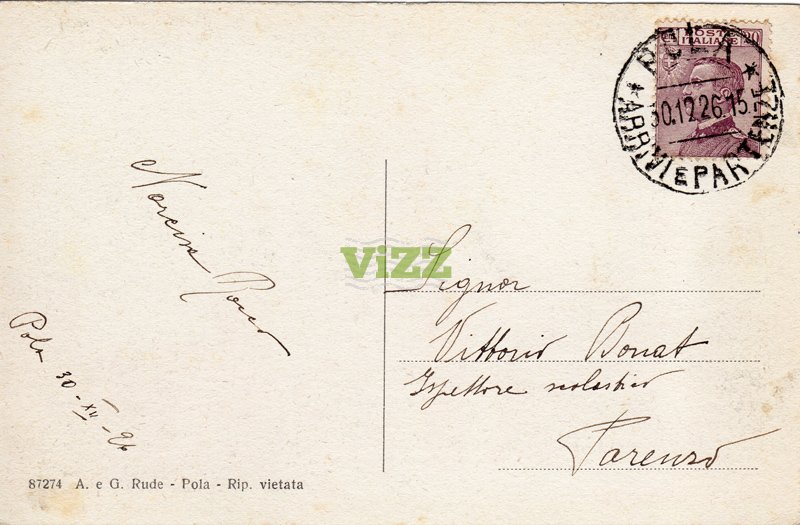 POSTE ITALIANE 20
POLA
30.12.26.15
ARRIVI E PARTENZE
Narciso Rocco
Pola 30-XII-26
ViZZ
Signor
Vittorio Bonat
Ispettore scolastico
Parenzo
87274 A. e G. Rude - Pola - Rip. vietata